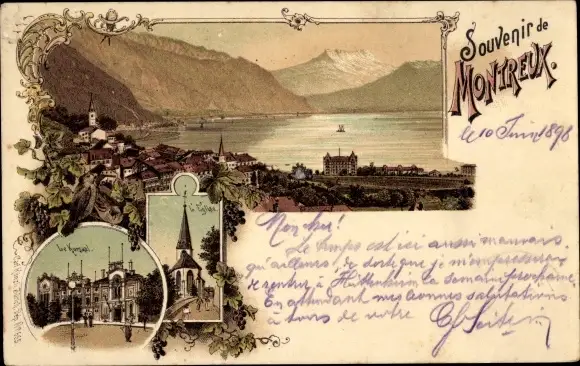 Souvenir de
MONTREUX.
le 10 Juin 1898
Le Kursaal.
L'Eglise.
Mon cher!
Le temps est ici aussi mauvais
qu'ailleurs, de sorte que je m'empresserai
de rentrer à la semaine prochaine.
En attendant mes bonnes salutations
à tous de votre